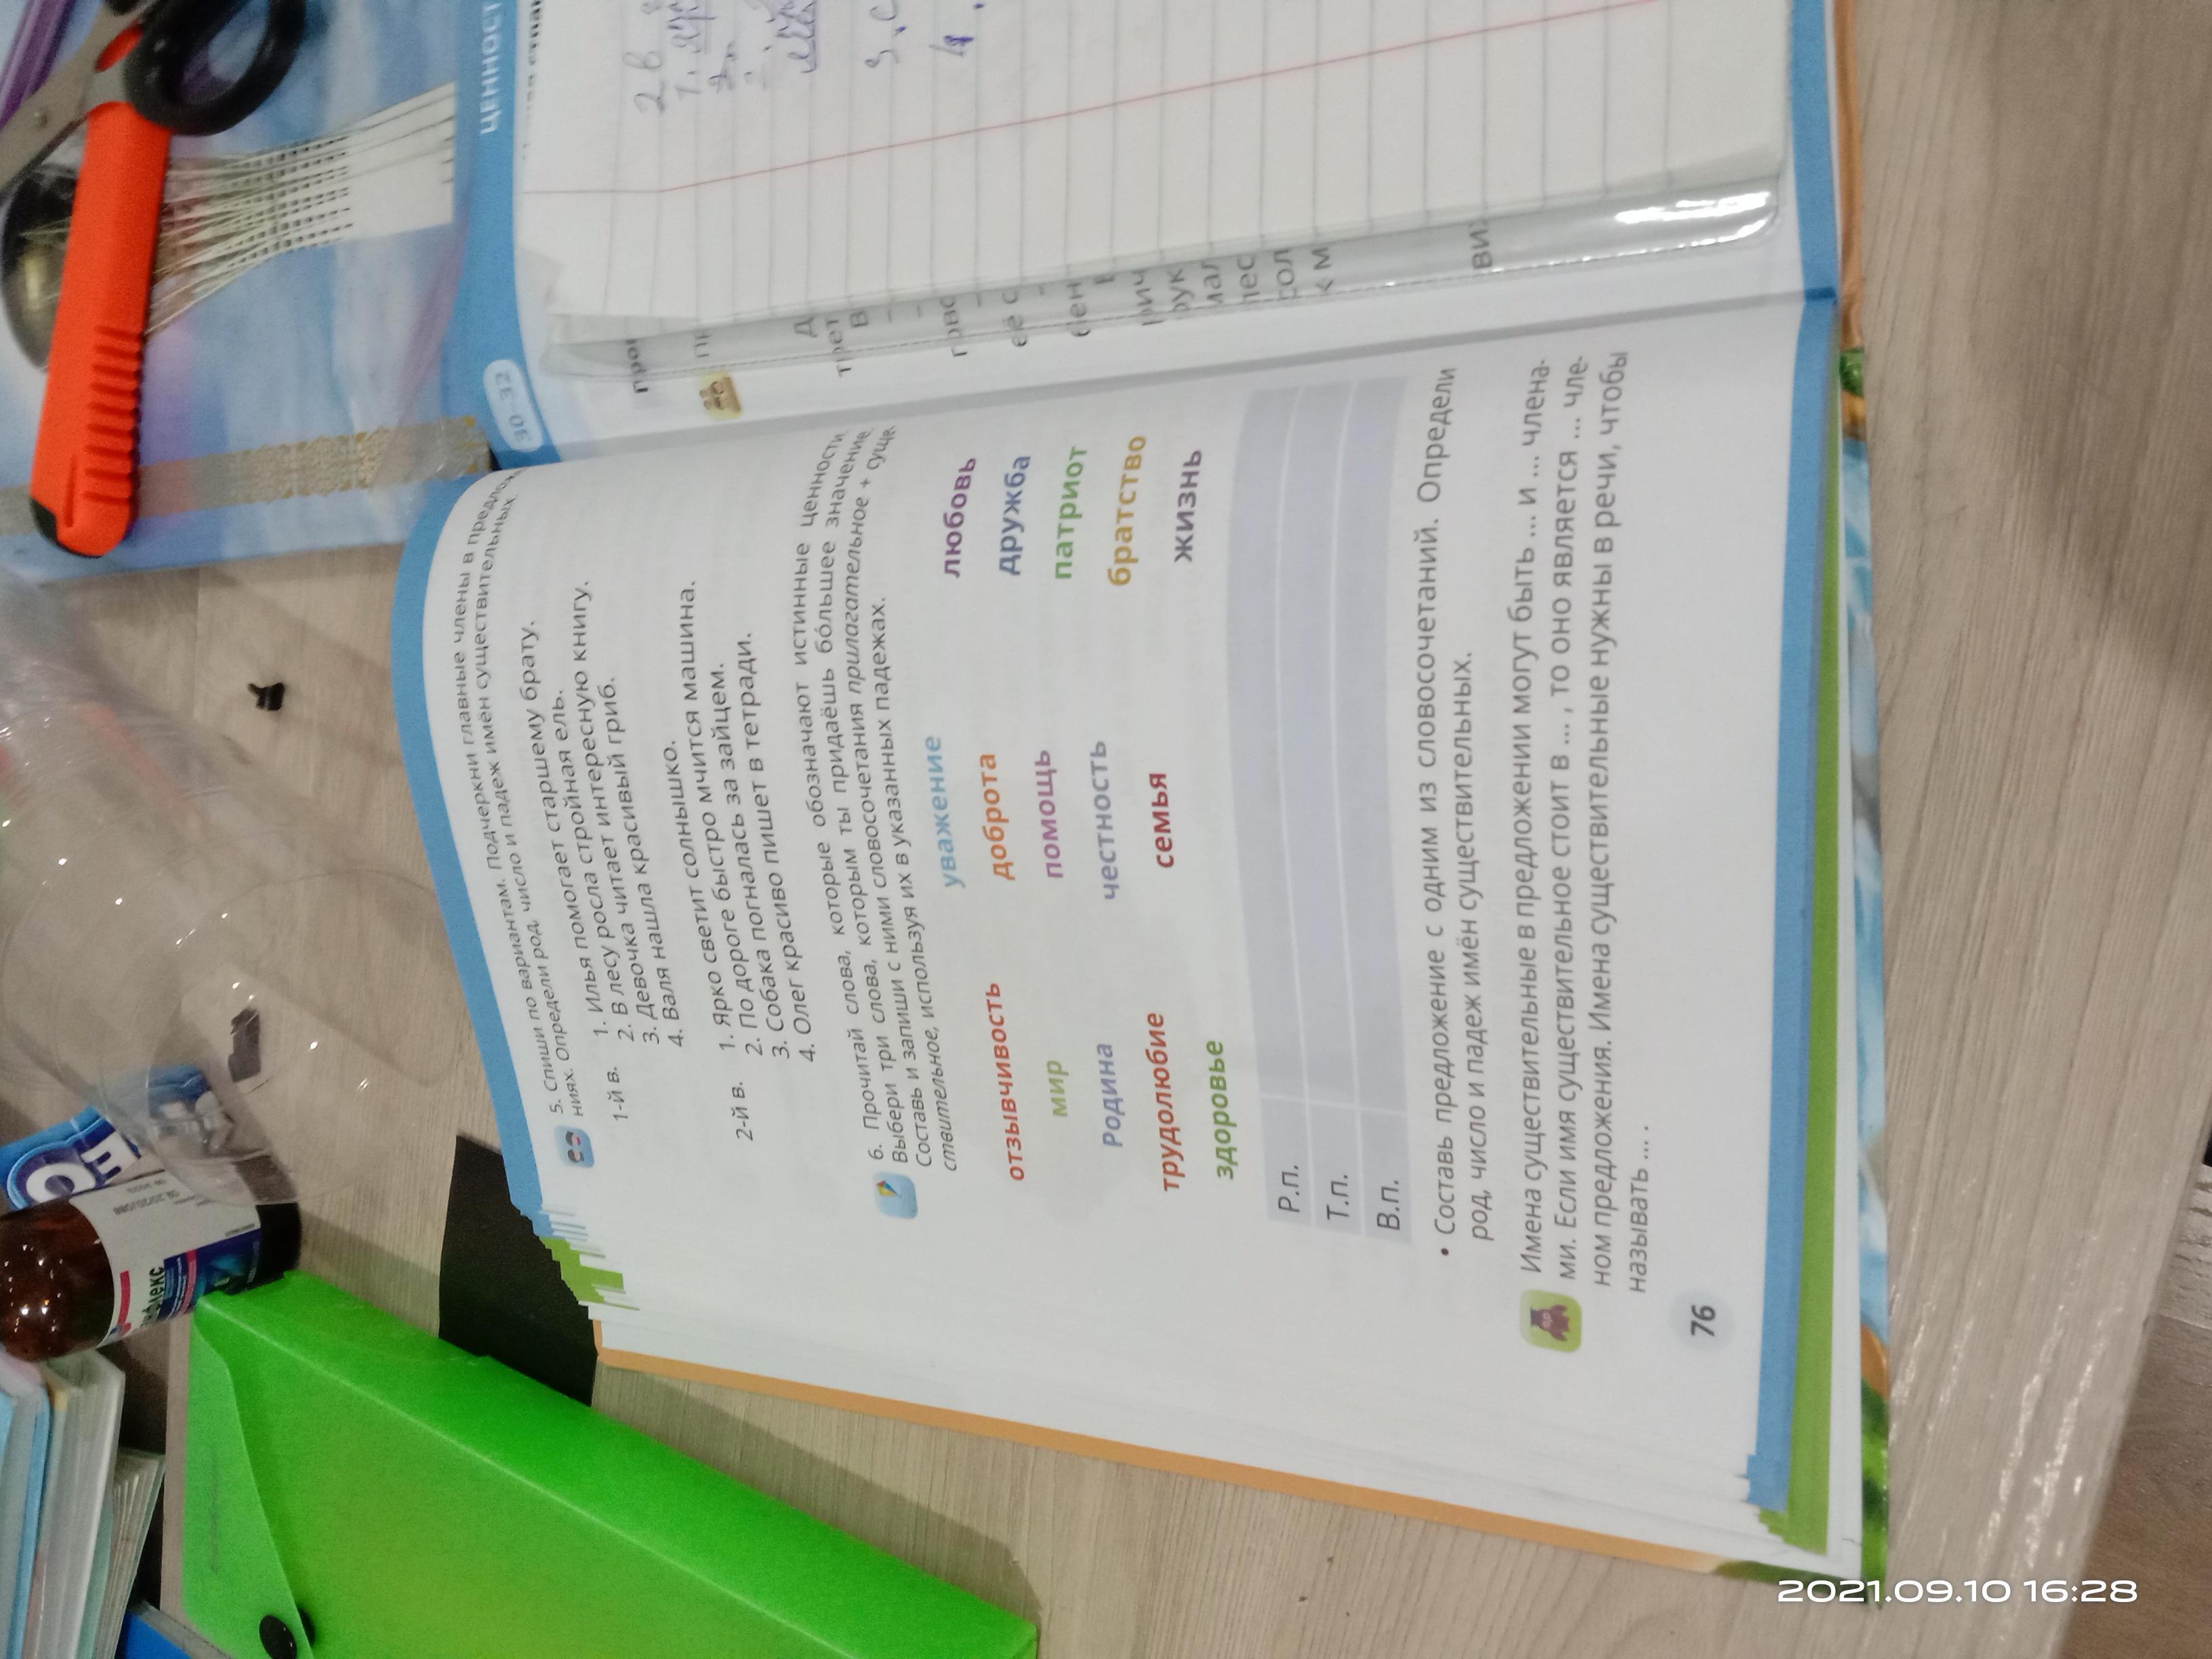 5. Спиши по вариантам. Подчеркни главные члены в
ниях. Определи род, число и падеж имён существительных.
1-й в. 1. Илья помогает старшему брату.
2. В лесу росла стройная ель.
3. Девочка читает интересную книгу.
4. Валя нашла красивый гриб.
2-й в. 1. Ярко светит солнышко.
2. По дороге быстро мчится машина.
3. Собака погналась за зайцем.
4. Олег красиво пишет в тетради.
6. Прочитай слова, которые обозначают истинные ценности.
Выбери три слова, которым ты придаёшь бо́льшее значение.
Составь и запиши с ними словосочетания прилагательное + суще-
ствительное, используя их в указанных падежах.
уважение любовь
отзывчивость доброта дружба
мир помощь патриот
Родина честность братство
трудолюбие семья жизнь
здоровье
Р.п.
Т.п.
В.п.
• Составь предложение с одним из словосочетаний. Определи
род, число и падеж имён существительных.
Имена существительные в предложении могут быть ... и ... члена-
ми. Если имя существительное стоит в ... , то оно является ... чле-
ном предложения. Имена существительные нужны в речи, чтобы
называть ... .
76
30–32
ЦЕННОСТ
2в
1.
3. с
4.
2021.09.10 16:28